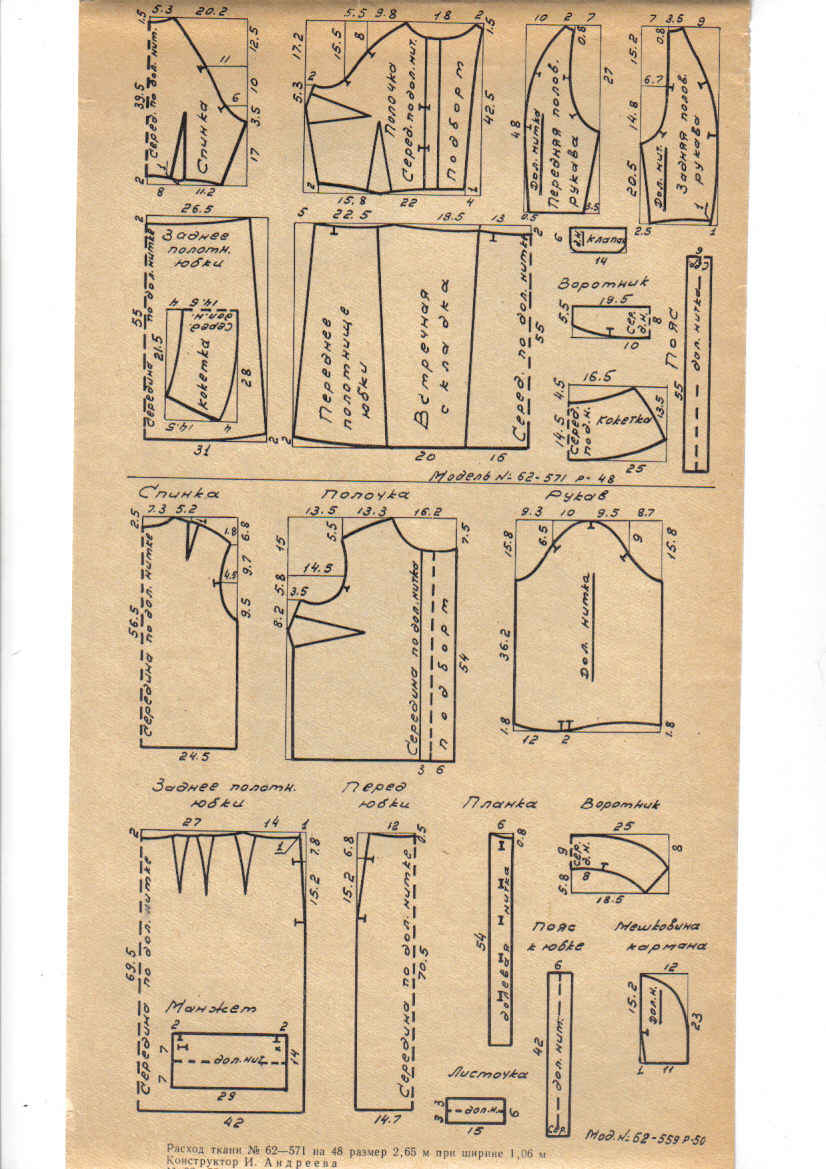 1.5 5.3 20.2 12.5
39.5 11 10
6 3.5
17
2 8 11.2
1
Серед. по дол. нит.
Спинка
5.5 9.8 18 2
17.2 15.5 8 1.5
2
5.3
42.5
2 15.8 22 4 1
Полочка
Серед. по дол. нит.
Подборт
10 2 7
0.8
27
48
3.5
Дол. нитка
Передняя полов.
рукава
7 3.5 9
15.2 0.8
6.7
14.8
20.5
2.5 1 1
Дол. нит.
Задняя полов.
рукава
26.5
2
Заднее
полотн.
юбки
Середина по дол. нитке
55
21.5
4 14.5 4
Серед.
дол. н.
кокетка
28
14.5 4
31 2
5 22.5 18.5 13 0.5
2
Переднее
полотнище
юбки
Встречная
складка
Серед. по дол. нитке
55
2 20 16
6 д.н. клапан
14
Воротник
19.5
5.5 Сер. д.н. 8
10
16.5
4.5
14.5 Серед. по д.н. Кокетка 13.5
25
9
Сер.
Пояс
55
дол. нитка
Модель № 62-571 р- 48
Спинка Полочка Рукав
7.3 5.2
2.5 1 1.8 6.8
9.7
4.5
9.5
56.5
Середина по дол. нитке
24.5
13.5 13.3 16.2
15 5.5 7.5
14.5
5.8
3.5
8.2
54
Середина по дол. нитке
подборт
3 6
9.3 10 9.5 8.7
15.8 6.5 9 15.8
Дол. нитка
36.2
1.8 12 2 1.8
Заднее полотн.
юбки
27 14 1
2 1 7.8
15.2
69.5
Середина по дол. нитке
Манжет
2 2
7 дол. нит. 14
7
29
42
Перед
юбки
12
6.8 0.5
15.2
70.5
Середина по дол. нитке
14.7
Планка
6
0.8
54
долевая нитка
Воротник
25
9 Сер. д.н. 8
5.8 8
18.5
Пояс
к юбке
6
42
дол. нит.
Сер.
Мешковина
кармана
12
15.2 Дол. н. 23
1 11
Листочка
3 3 дол. н. 6
15
Мод. № 62-559 р-50
Расход ткани № 62—571 на 48 размер 2,65 м при ширине 1,06 м
Конструктор И. Андреева